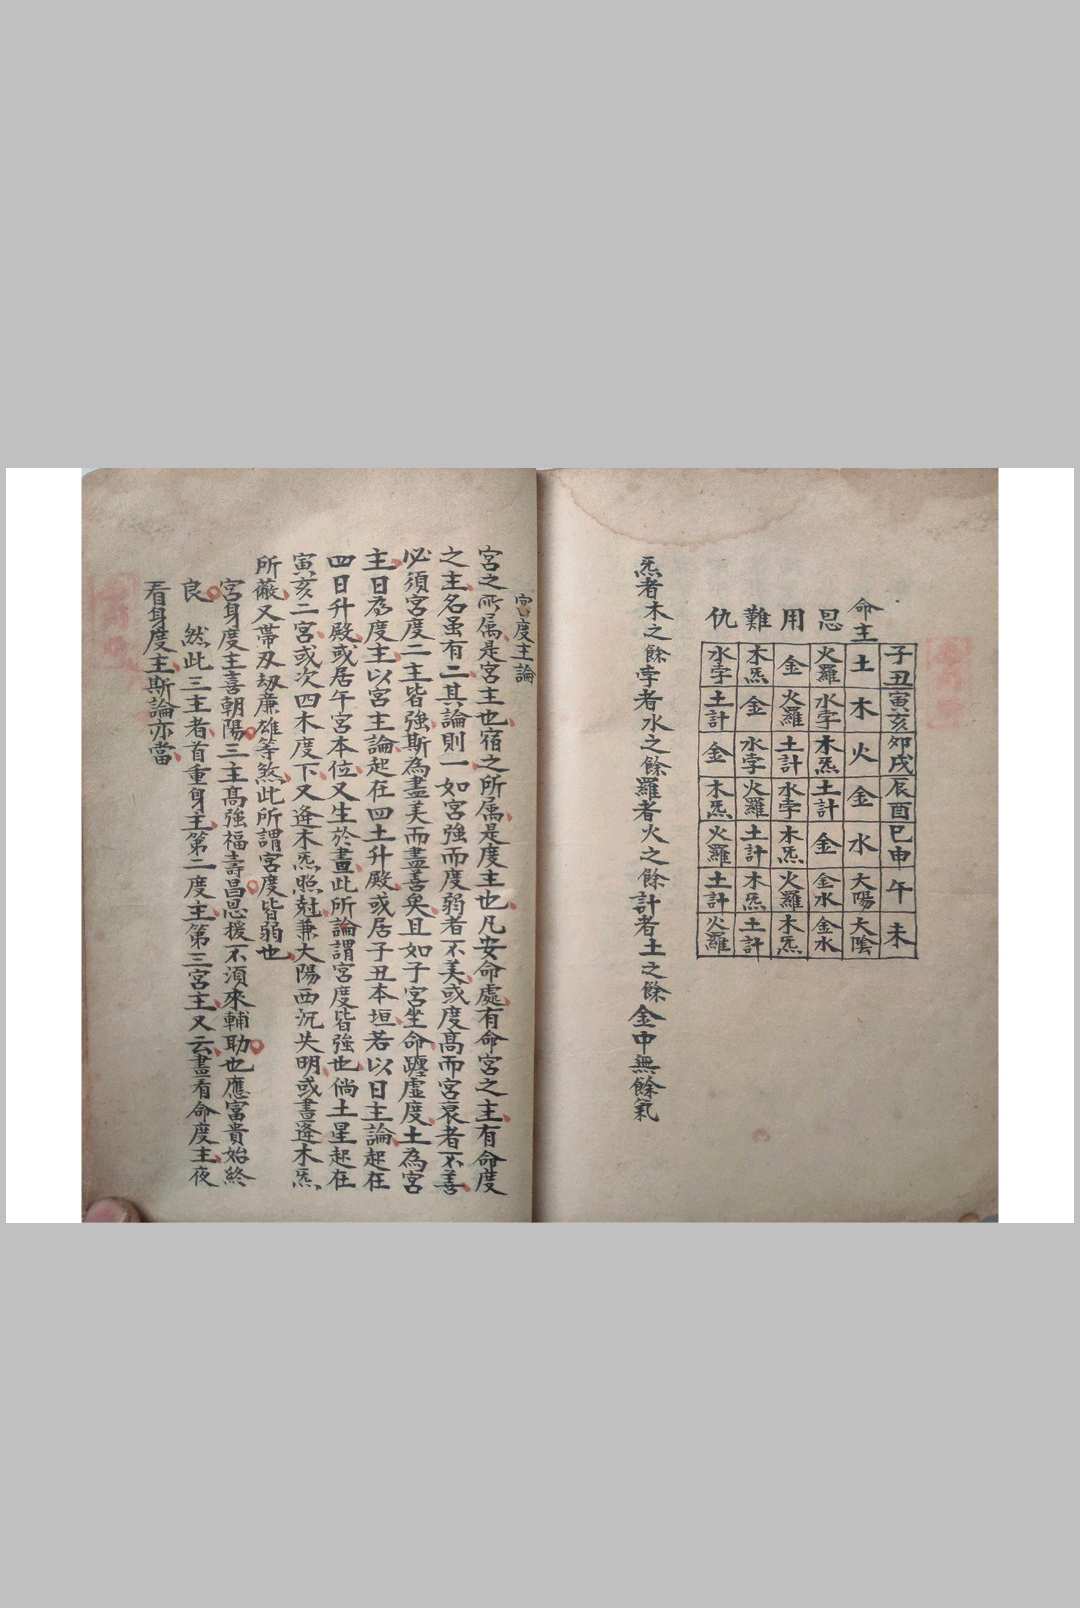 命主
恩
用
難
仇
子丑 寅亥 卯戌 辰酉 巳申 午 未
土 木 火 金 水 太陽 太陰
火羅 水孛 木炁 土計 金 金水 金水
金 火羅 土計 水孛 木炁 火羅 木炁
木炁 金 水孛 火羅 土計 木炁 土計
水孛 土計 金 木炁 火羅 土計 火羅
炁者木之餘孛者水之餘羅者火之餘計者土之餘金中無餘氣
宮度主論
宮之所属是宮主也宿之所属是度主也凡安命處有命宮之主有命度
之主名虽有二其論則一如宮強而度弱者不美或度高而宮衰者不善
必須宮度二主皆強斯為盡美而盡善矣且如子宮坐命躔虛度土為宮
主日為度主以宮主論起在四土升殿或居子丑本垣若以日主論起在
四日升殿或居午宮本位又生於晝此所論謂宮度皆強也倘土星起在
寅亥二宮或次四木度下又逢木炁照尅兼大陽西沉失明或晝逢木炁
所蔽又帶刃刼廉雄等煞此所謂宮度皆弱也
宮身度主喜朝陽三主高強福壽昌恩援不須來輔助也應富貴始終
良 然此三主者首重身主第二度主第三宮主又云晝看命度主夜
看身度主斯論亦當